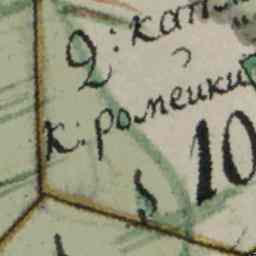 2: кап
к: ромейки
10